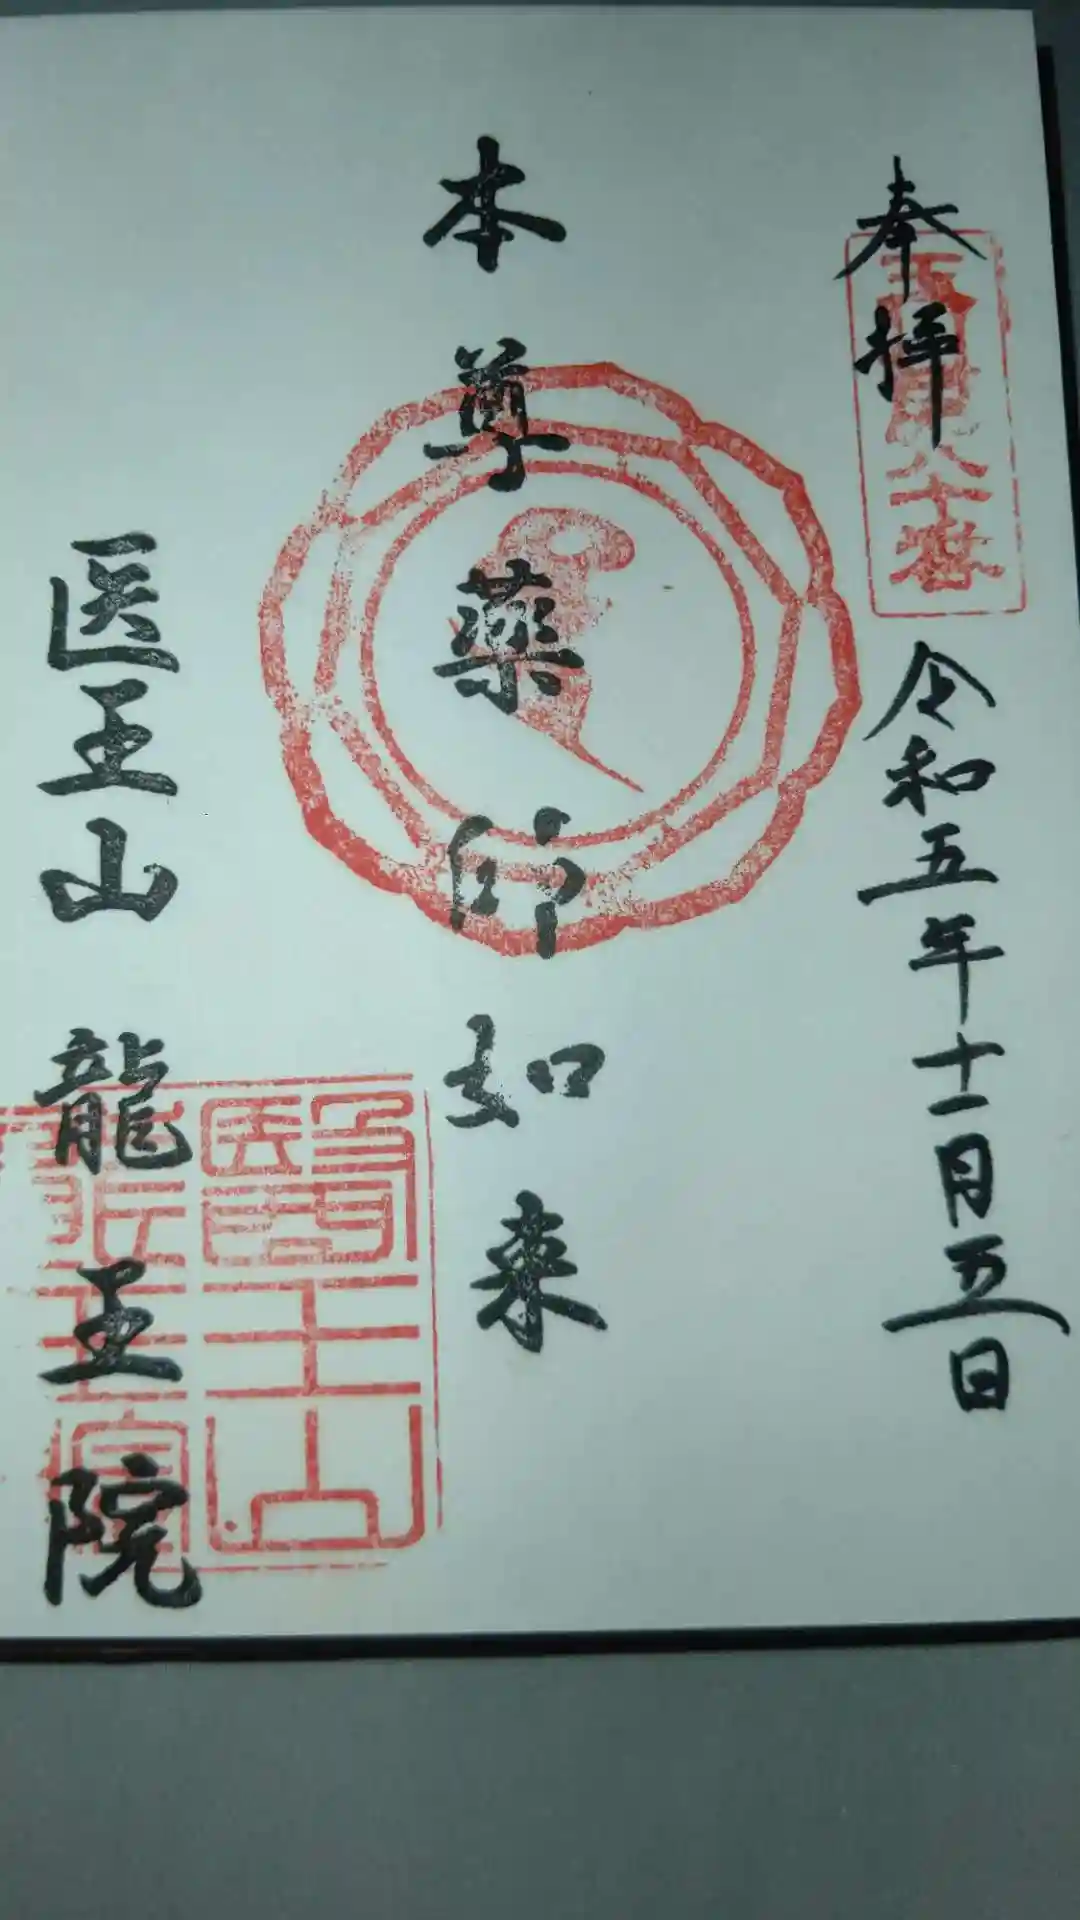 奉拝
令和五年十一月五日
本尊薬師如来
医王山 龍王院
醫王山
龍王院